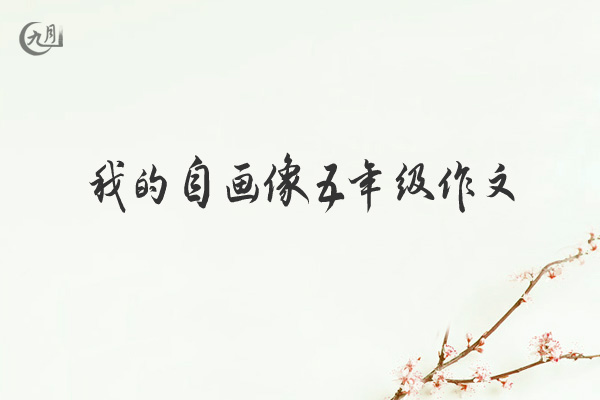 九月
我的自画像五年级作文